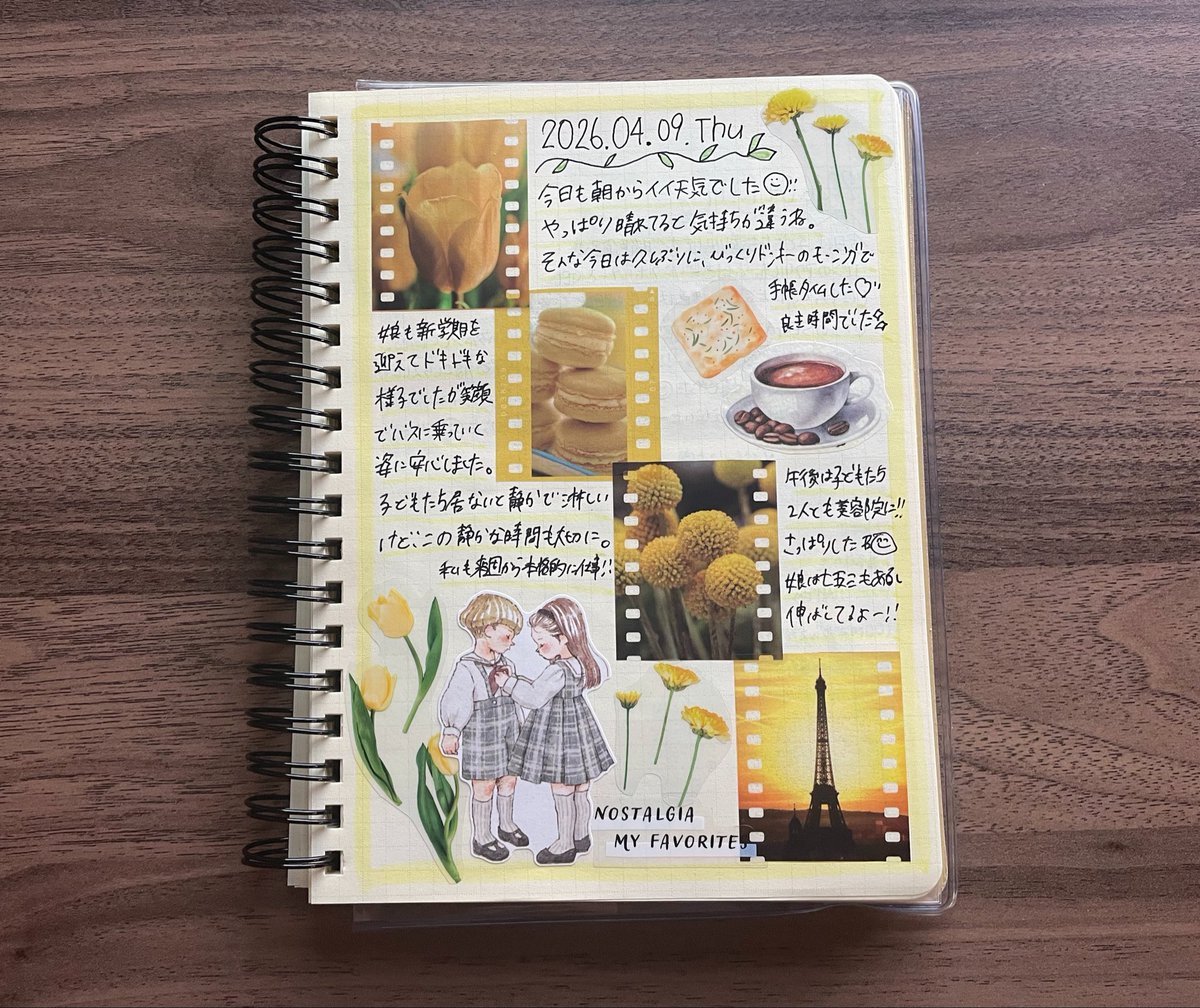 2026.04.09.Thu
今日も朝からイイ天気でした!!
やっぱり晴れてると気持ちが違うね。
そんな今日は久しぶりに、びっくりドンキーのモーニングで
手帳タイムした♡!!
良き時間でした
娘も新学期を
迎えてドキドキな
様子でしたが笑顔
でバスに乗っていく
姿に安心しました。
子どもたち居ないと静かで淋しい
けどこの静かな時間も大切に。
私も来週から本格的に仕事!!
午後は子どもたち
2人とも美容院に!!
さっぱりした
娘は七五三もあるし
伸ばしてるよー!!
NOSTALGIA
MY FAVORITES